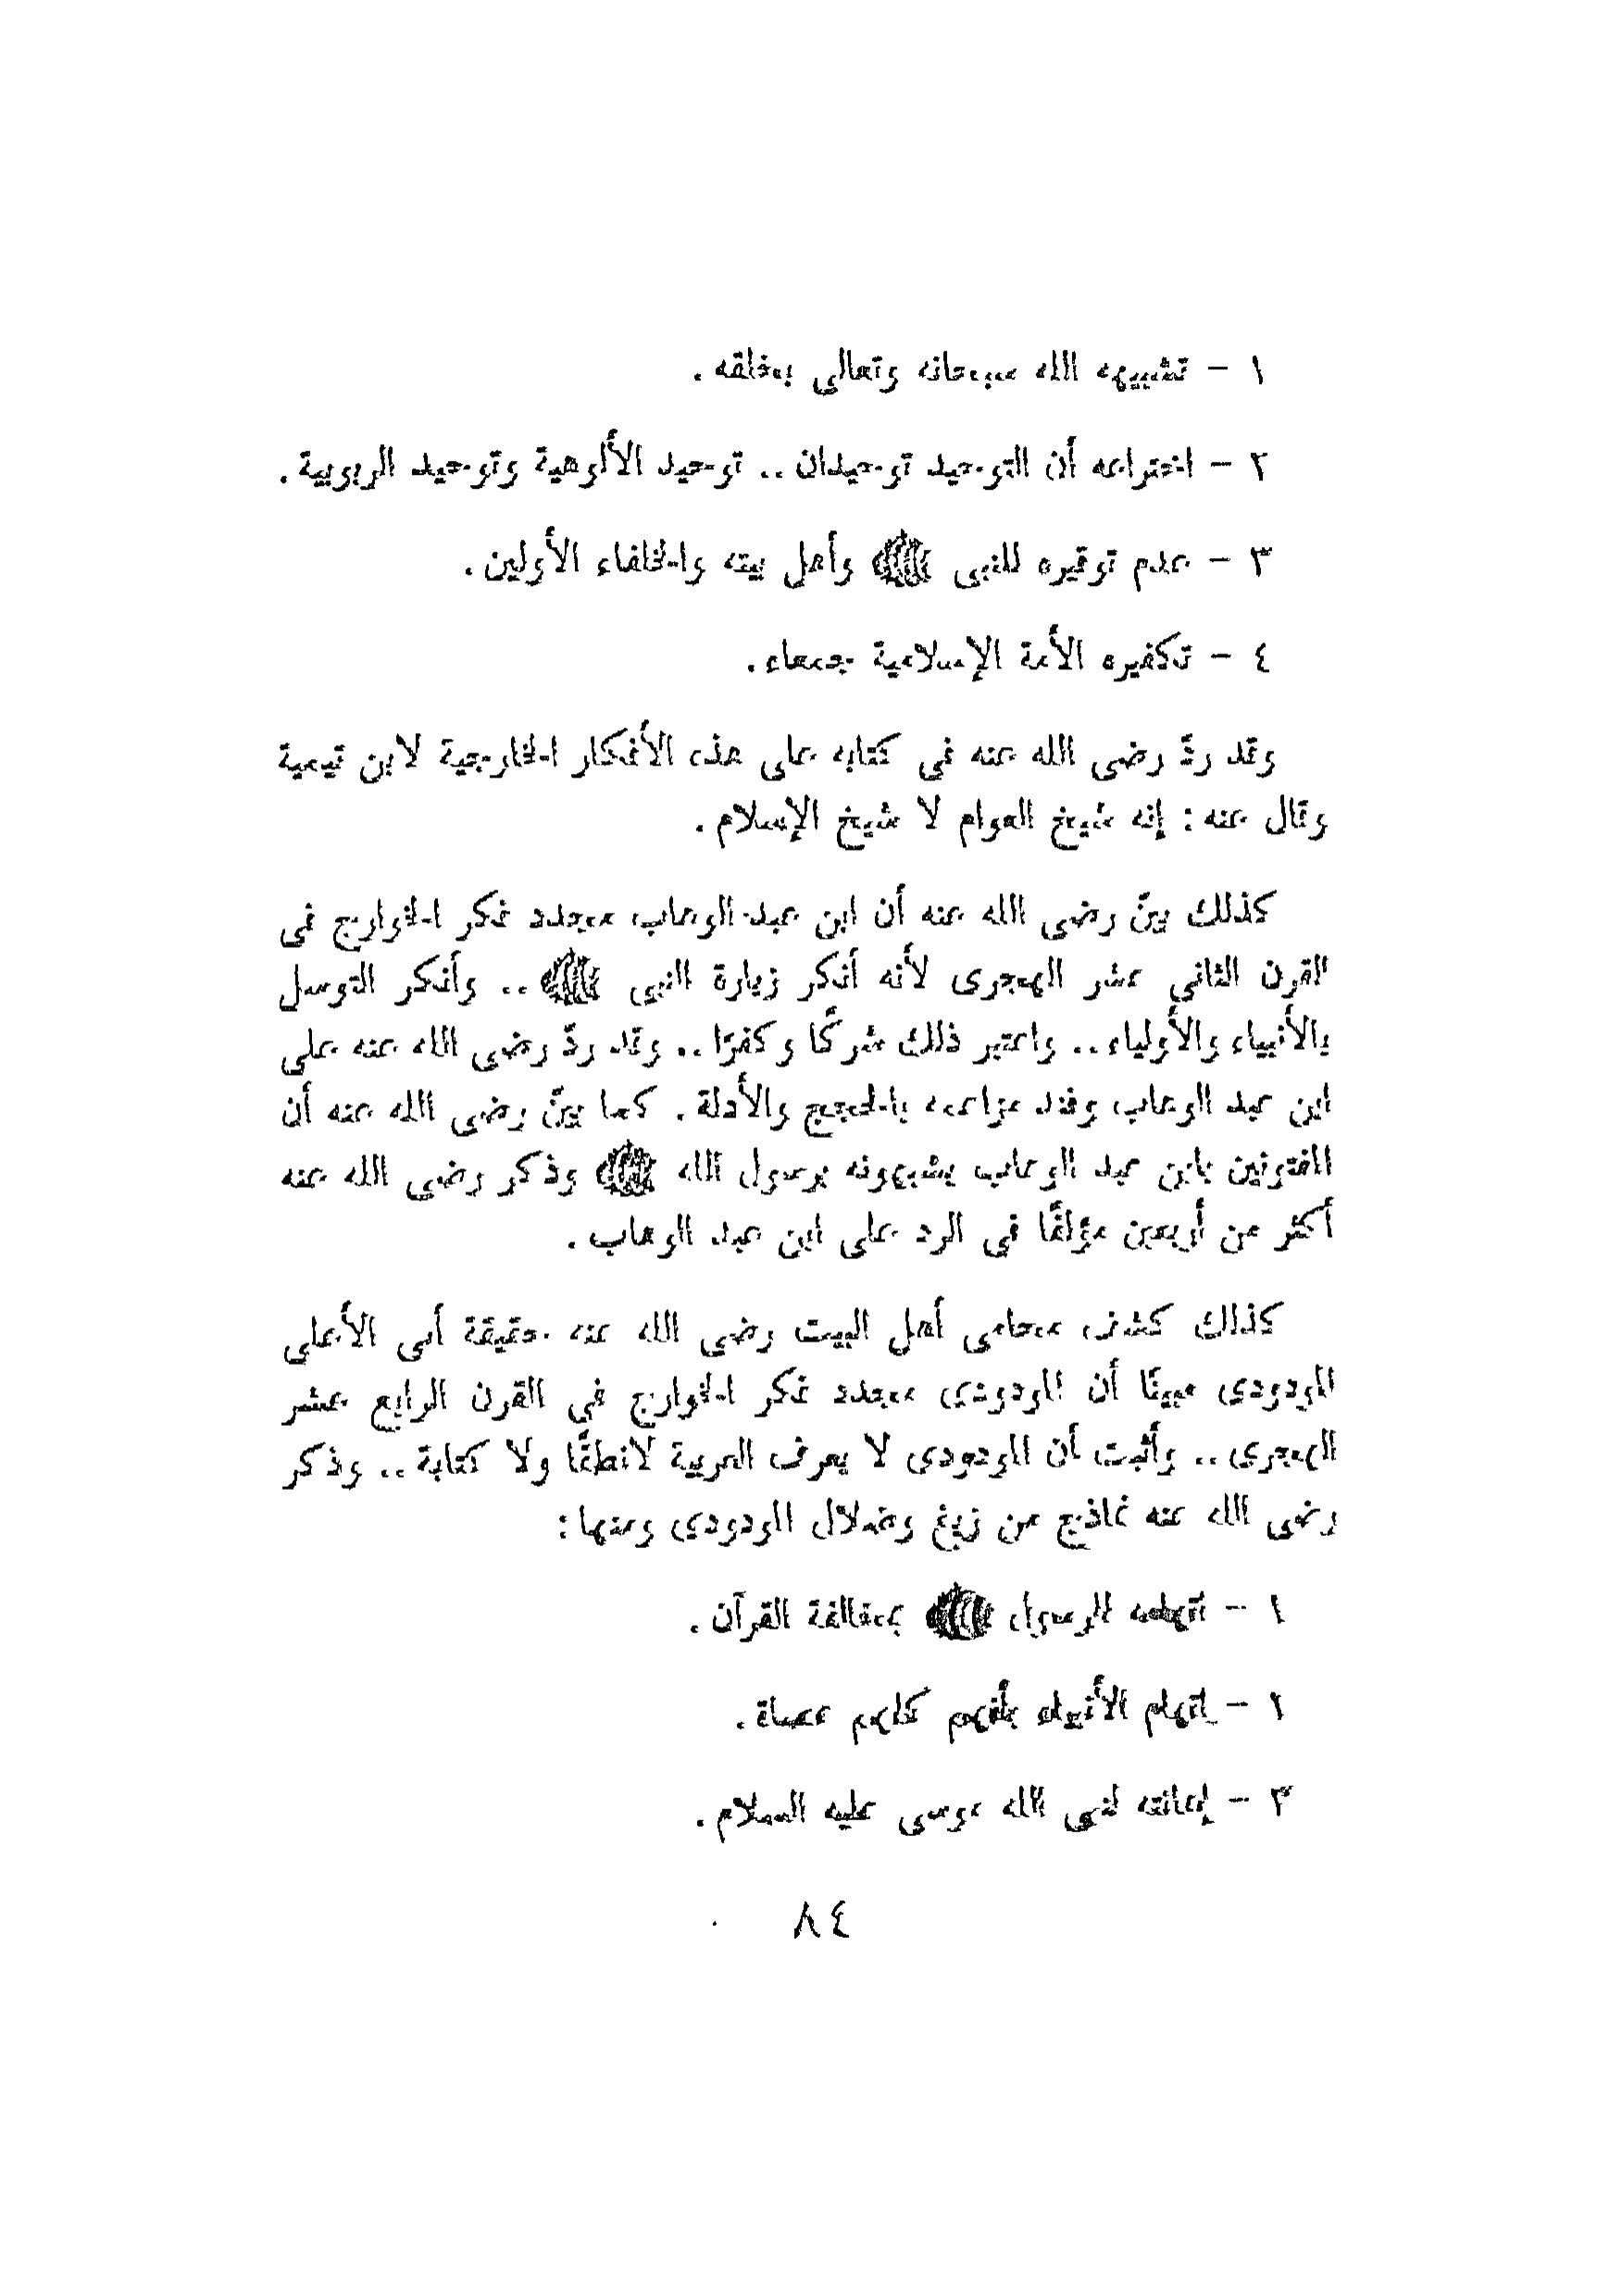 ١ - تشبيهه الله سبحانه وتعالى بخلقه .
٢ - اختراعه أن التوحيد توحيدان .. توحيد الألوهية وتوحيد الربوبية .
٣ - عدم توقيره للنبى ﷺ وأهل بيته والخلفاء الأولين .
٤ - تكفيره الأمة الإسلامية جمعاء .
وقد ردّ رضى الله عنه في كتابه على هذه الأفكار الخارجية لابن تيمية
وقال عنه : إنه شيخ العوام لا شيخ الإسلام .
كذلك بينّ رضى الله عنه أن ابن عبد الوهاب مجدد فكر الخوارج فى
القرن الثاني عشر الهجرى لأنه أنكر زيارة النبى ﷺ .. وأنكر التوسل
بالأنبياء والأولياء .. واعتبر ذلك شركًا وكفرًا .. وقد ردّ رضى الله عنه على
ابن عبد الوهاب وفند مزاعمه بالحجج والأدلة . كما بينّ رضى الله عنه أن
المفتونين بابن عبد الوهاب يشبهونه برسول الله ﷺ وذكر رضى الله عنه
أكثر من أربعين مؤلفًا في الرد على ابن عبد الوهاب .
كذلك كشف محامى أهل البيت رضى الله عنه حقيقة أبى الأعلى
المودودى مبينًا أن المودودى مجدد فكر الخوارج في القرن الرابع عشر
الهجرى .. وأثبت أن المودودى لا يعرف العربية لانطقًا ولا كتابة .. وذكر
رضى الله عنه نماذج من زيغ وضلال المودودى ومنها :
١ - اتهامه الرسول ﷺ بمخالفة القرآن .
٢ - اتهام الأنبياء بأنهم كلهم عصاة .
٣ - إهانته لنبى الله موسى عليه السلام .
٨٤